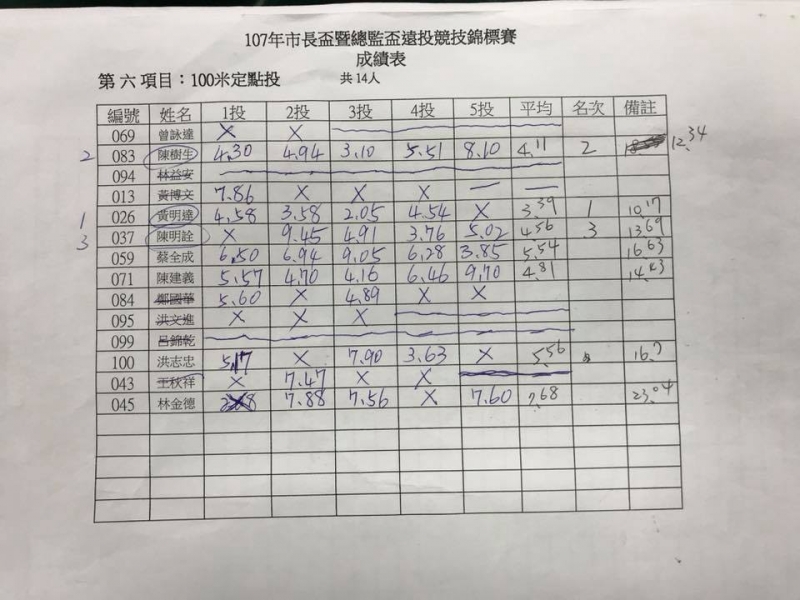 107年市長盃暨總監盃遠投競技錦標賽
成績表
第六項目：100米定點投 共14人
編號 姓名 1投 2投 3投 4投 5投 平均 名次 備註
069 曾詠達 X X
2 083 陳樹生 4.30 4.94 3.10 5.51 8.10 4.11 2 12.34
094 林益安
013 黃博文 7.86 X X X
1 026 黃明達 4.58 3.58 2.05 4.54 X 3.39 1 10.17
3 037 陳明詮 X 9.45 4.91 3.76 5.02 4.56 3 13.69
059 蔡全成 6.50 6.94 9.05 6.28 3.85 5.54 16.63
071 陳建義 5.57 4.70 4.16 6.46 9.70 4.81 14.43
084 鄭國華 5.60 X 4.89 X X
095 洪文進 X X X
099 呂錦乾
100 洪志忠 5.17 X 7.90 3.63 X 5.56 16.7
043 王秋祥 X 7.47 X X
045 林金德 7.88 7.56 X 7.60 7.68 23.04